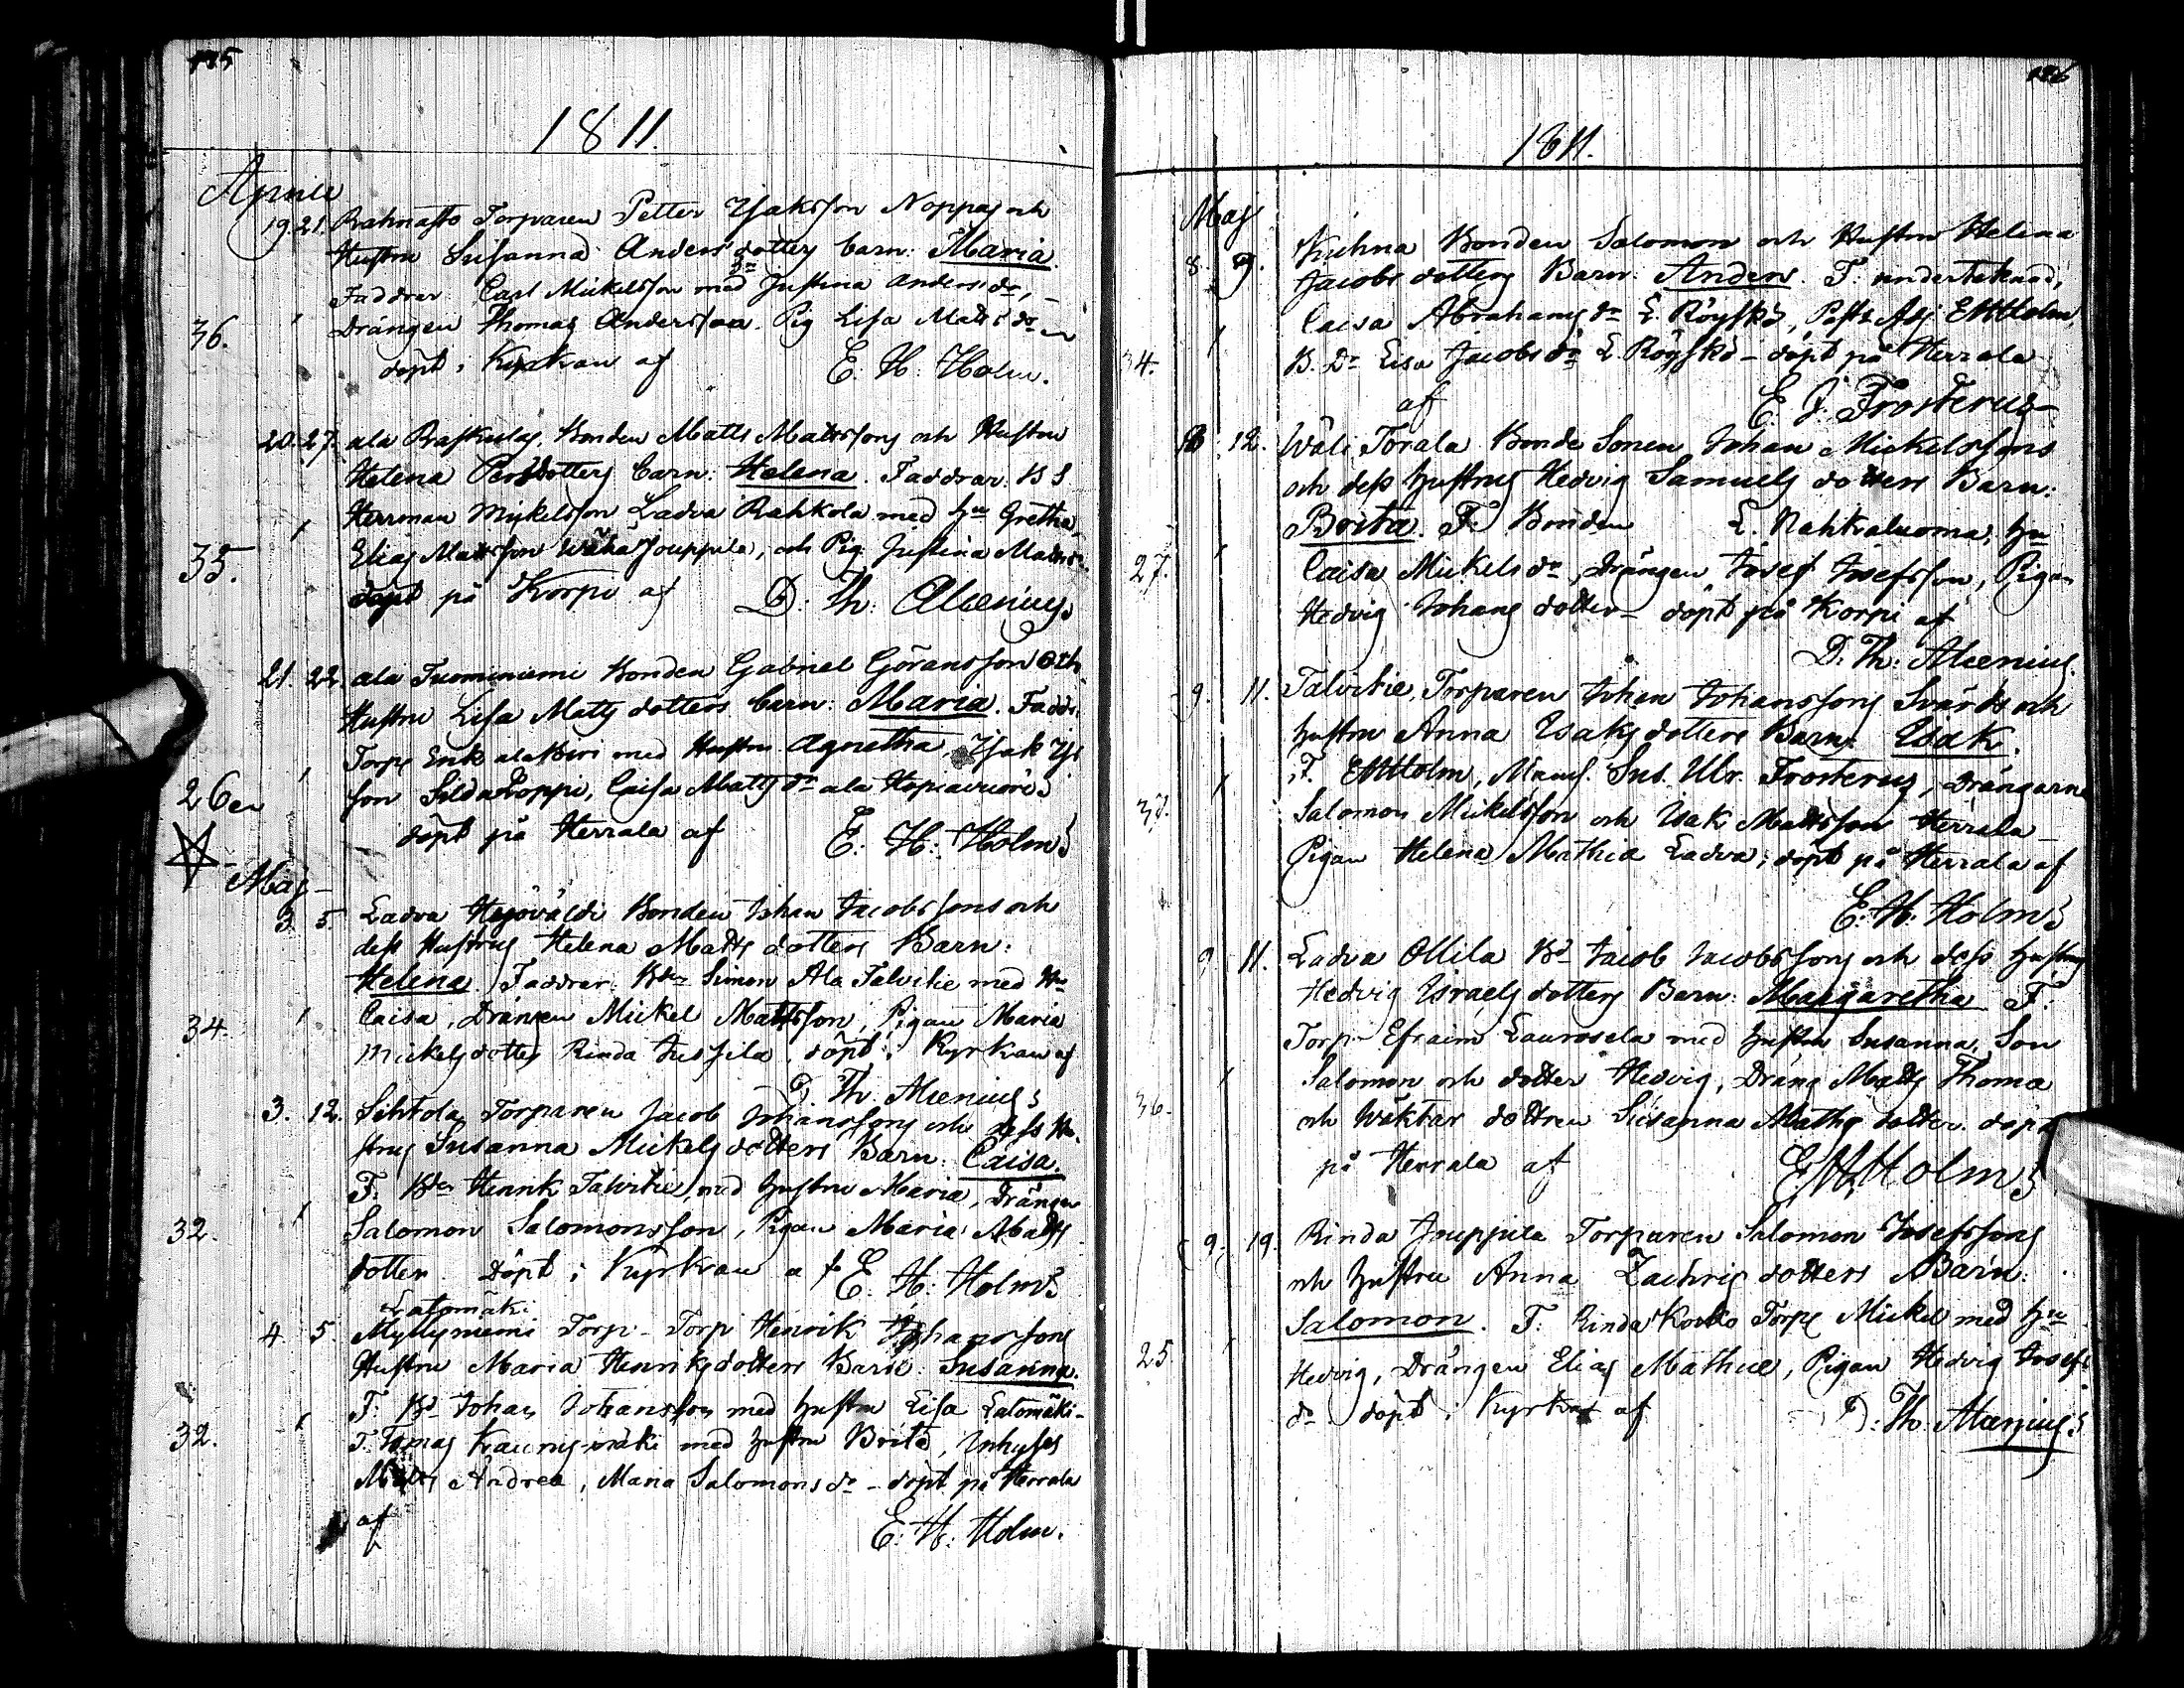 185
1811.
Aprill
19. 21. Rahnasto Torparen Petter Isaksson Noppas och
Hustru Susanna Andersdotters barn: Maria.
Faddrar Carl Mickelsson med Justina Anders dr,
36. Drängen Thomas Andersson. Pig Lisa Matts dr
döpt i Kyrkan af E. H. Holm.
20. 27. ala Paskulas, Bonden Matts Mattssons och Hustru
Helena Persdotters barn: Helena. Faddrar: B S
Herrman Mickelsson Ladva Rahkola med hu Gretha,
Elias Mattsson Wäha Jouppila, och Pig. Justina Matts
35. döpt på Korpi af D: Th: Alcenius.
21. 22. ala Tuominiemi Bonden Gabriel Göransson och
Hustru Lisa Matts dotters barn: Maria. Faddr.
Torp Erik ala med Hustru Agnetha, Isak Is
26 son Caisa Matts dr ala
döpt på Herrala af E. H: Holm.
Maj
3. 5. Ladva Bonden Johan Jacobssons och
dess Hustrus Helena Matts dotters Barn:
Helena. Faddrar: Bden Simon Ala Talvitie med Hu
34. Caisa, Drängen Mickel Mattsson, Pigan Maria
Mickelsdotter Rinda Jussila, döpt i Kyrkan af
D. Th. Alcenius
3. 12. Sihtola Torparen Jacob Johanssons och dess Hu
strus Susanna Mickels dotters Barn: Caisa.
F. Bden Henrik Talvitie, med hustru Maria, Drängen
32. Salomon Salomonsson, Pigan Maria Matts
dotter. Döpt i Kyrkan af E. H: Holm.
Latomäki
4. 5. Myllyniemi Torp. Torp Henrik Johanssons
Hustru Maria Henriksdotters Barn: Susanna.
F: Bd Johan Johansson med hustru Lisa Latomäki
32. T: Tomas med hustru Brita, Inhyses
Matts Andrea, Maria Salomons dr - döpt på Herrala
af E. H: Holm.
186
1811.
Maj
8. 9. Kuhna Bonden Salomon och Hustru Helena
Jacobs dotters Barn: Anders. F: undertecknad,
Caisa Abrahams dr L. Röyskö, Past. Adj E H Holm,
34. B. Dr Lisa Jacobs dr L. Röyskö - döpt på Herrala
af E. J. Frosterus
12. Wäli Torala Bonde Sonen Johan Mickelssons
och dess hustrus Hedvig Samuels dotters Barn:
Brita. F: Bonden L. Nahkaluoma, hu
27. Caisa Mickels dr, Drängen Josef Josefsson, Pigan
Hedvig Johans dotter - döpt på Korpi af
D. Th: Alcenius.
9. 11. Talvitie, Torparen Johan Johanssons Svärds och
hustru Anna Isaks dotters Barn: Isak.
F. E H Holm, Mams. Sus. Ulr. Frosterus, Drängarne
Salomon Mickelsson och Isak Mattsson Herrala
Pigan Helena Mathia Ladva, döpt på Herrala af
E. H. Holm
9. 11. Ladva Ollila Bd Jacob Jacobssons och dess hustrus
Hedvig Israels dotters Barn: Margaretha F:
Torp Efraim Laurosela med hustru Susanna, Son
Salomon och dotter Hedvig, Dräng Matts Thoma
36. och Wäktar dottren Susanna Maths dotter. döpt
på Herrala af E H Holm
9. 19. Rinda Jouppila Torparen Salomon Josefssons
och hustru Anna Zachris dotters Barn:
Salomon. F: Rinda Torp Mickel med hu
25. Hedvig, Drängen Elias Mathia, Pigan Hedvig Josefs
dr döpt i Kyrkan af D: Th. Alcenius